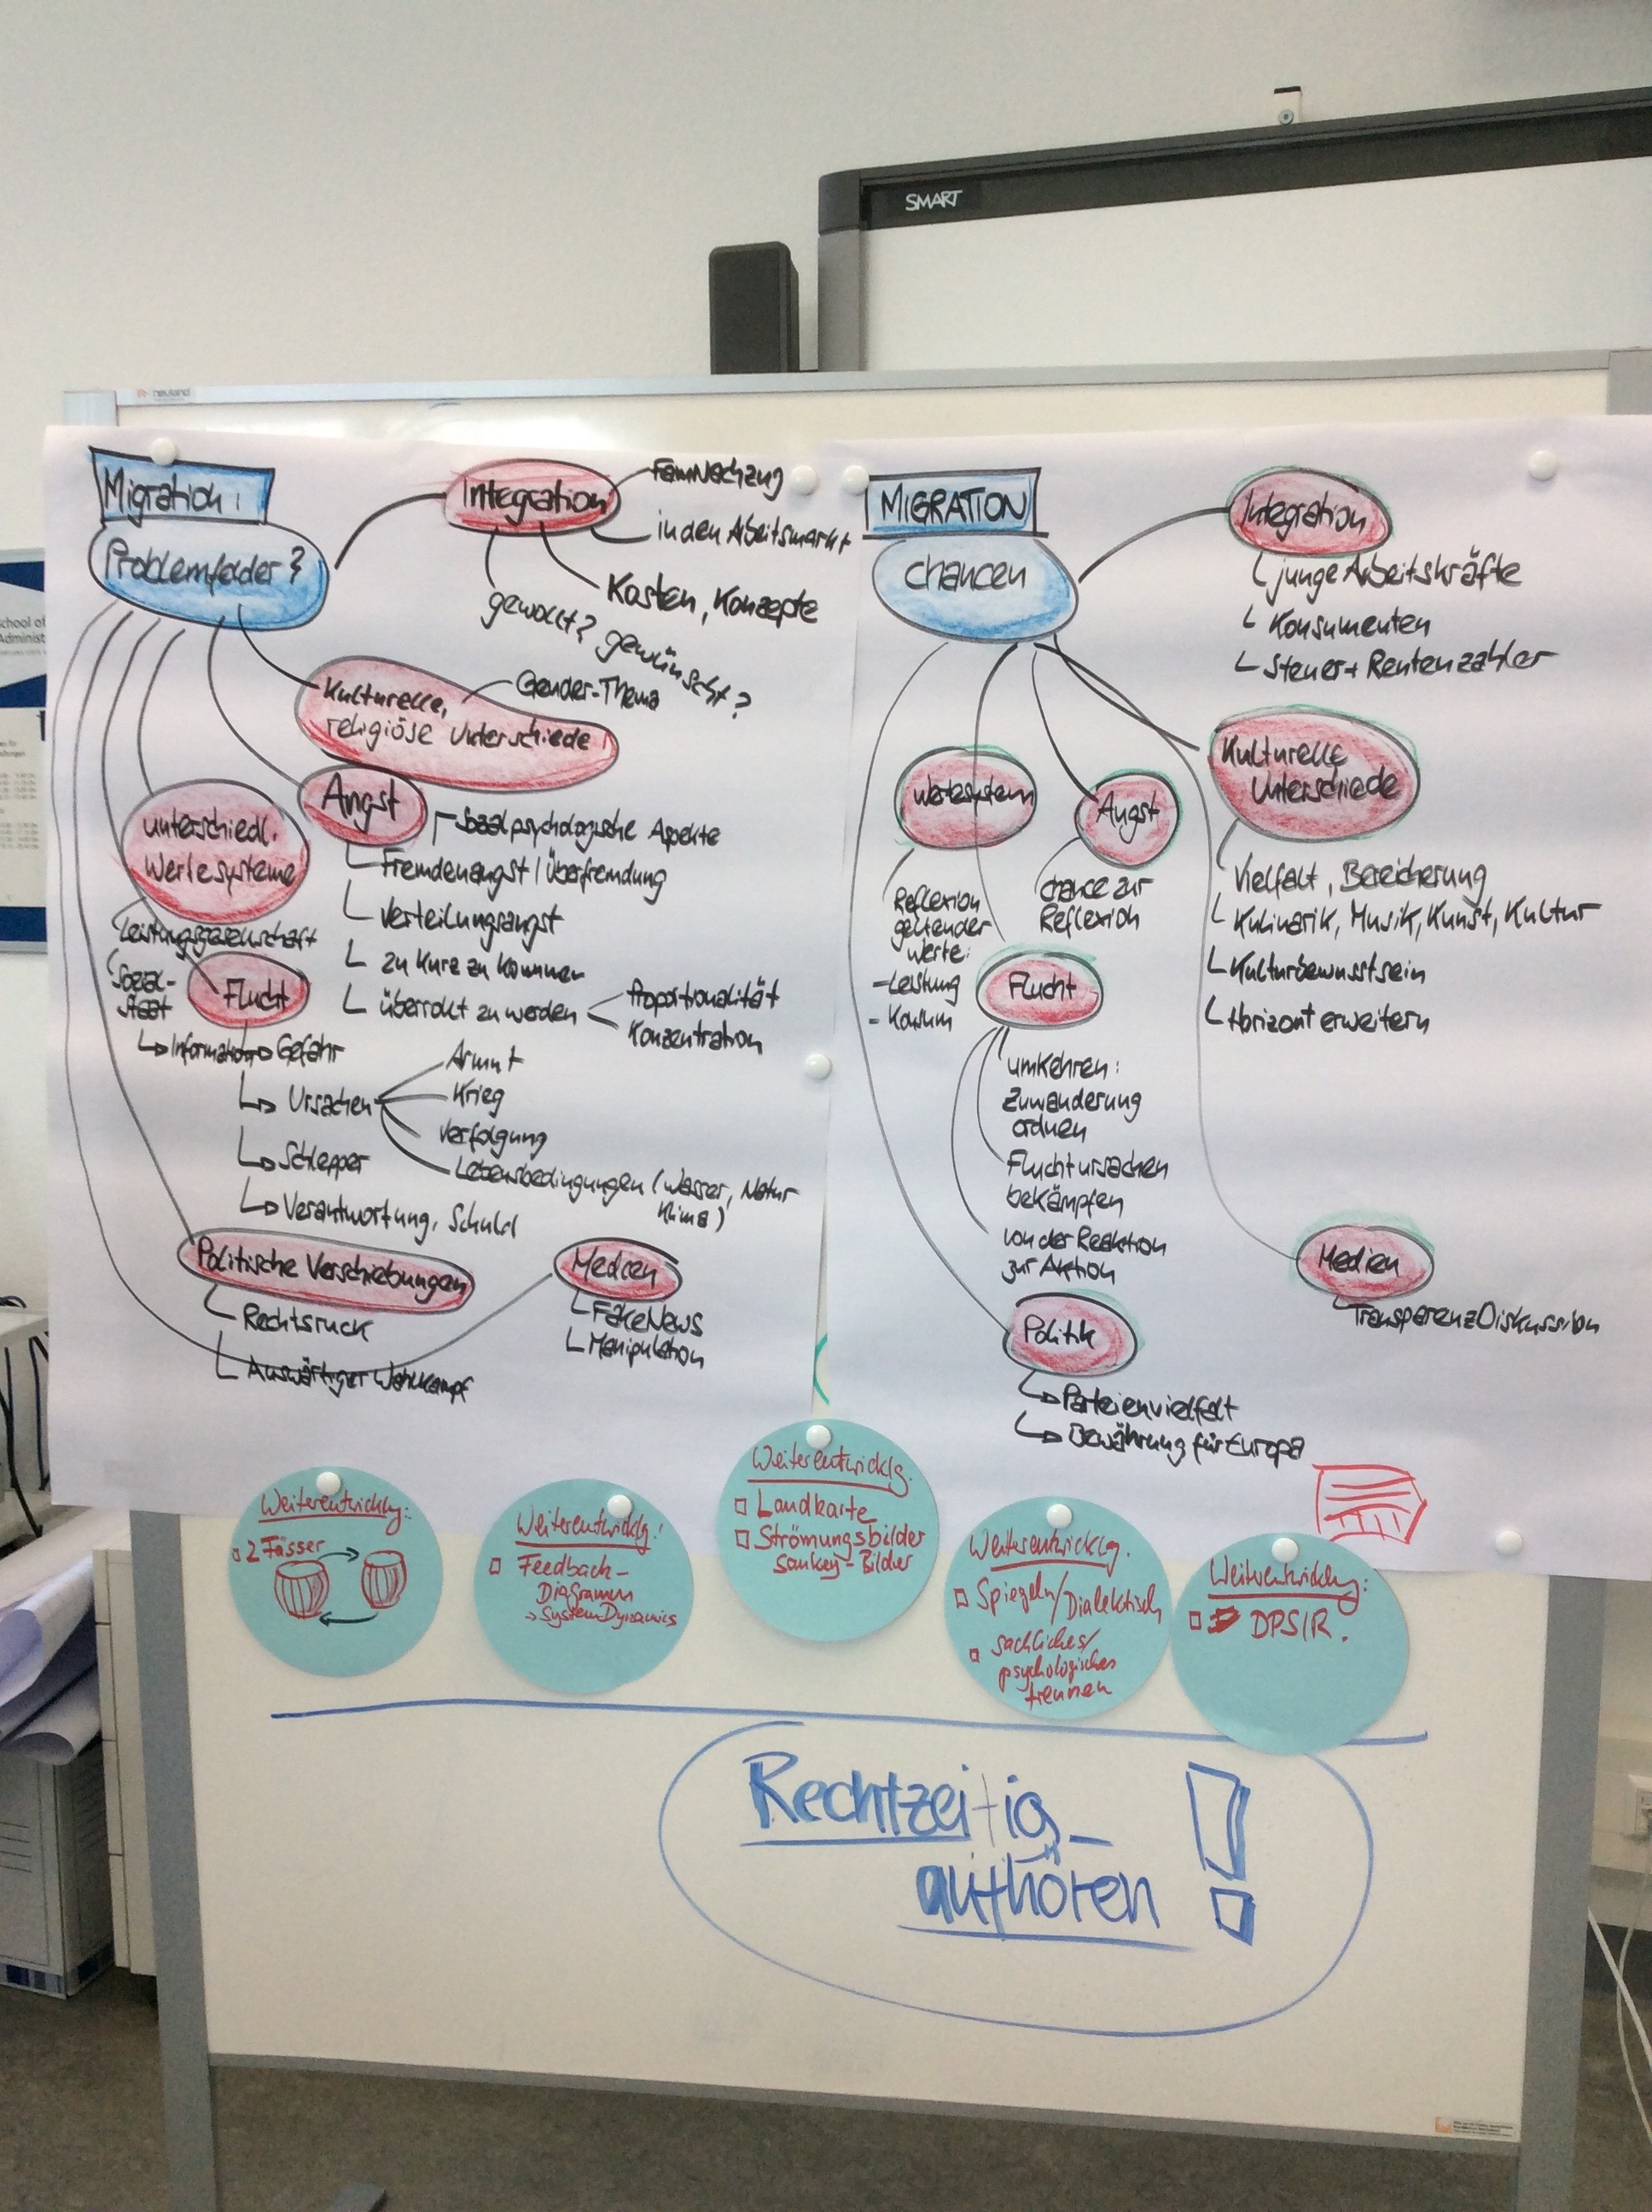 SMART
neuland
Migration:
Problemfelder?
Integration
FamNachzug
in den Arbeitsmarkt
Kosten, Konzepte
gewollt? gewünscht?
Kulturelle,
religiöse Unterschiede
Gender-Thema
Angst
Sozialpsychologische Aspekte
Fremdenangst/Überfremdung
Verteilungsangst
zu kurz zu kommen
überrollt zu werden
Proportionalität
Konzentration
unterschiedl.
Wertesysteme
Leistungsgesellschaft
Sozial-
staat
Flucht
Information
Gefahr
Ursachen
Armut
Krieg
Verfolgung
Lebensbedingungen (Wasser, Natur
Klima)
Schlepper
Verantwortung, Schuld
Politische Verschiebungen
Rechtsruck
Auswärtiger Wahlkampf
Medien
FakeNews
Manipulation
MIGRATION
Chancen
Integration
junge Arbeitskräfte
Konsumenten
Steuer+Rentenzahler
Kulturelle
Unterschiede
Vielfalt, Bereicherung
Kulinarik, Musik, Kunst, Kultur
Kulturbewusstsein
Horizont erweitern
Wertesystem
Reflexion
geltender
Werte:
-Leistung
-Konsum
Angst
Chance zur
Reflexion
Flucht
umkehren:
Zuwanderung
ordnen
Fluchtursachen
bekämpfen
von der Reaktion
zur Aktion
Medien
TransparenzDiskussion
Politik
Parteienvielfalt
Bewährung für Europa
Weiterentwicklg:
2 Fässer
Weiterentwicklg!
Feedback-
Diagramm
→ System Dynamics
Weiterentwicklg.
Landkarte
Strömungsbilder
Sankey-Bilder
Weiterentwicklg.
Spiegeln/Dialektisch
sachliches/
psychologisches
trennen
Weiterentwicklg:
DPSIR.
Rechtzeitig
aufhören!
chool of
Administ